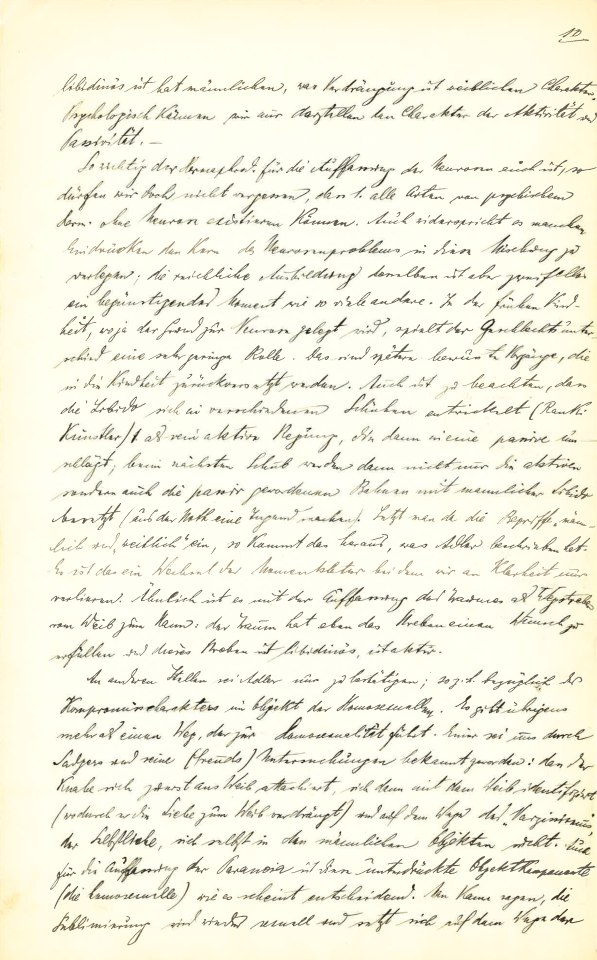 10
libidinös ist hat männlichen, was Verdrängung ist weiblichen Charakter.
Psychologisch können wir nur darstellen den Charakter der Aktivität und
Passivität. —
So wichtig der Hermaphrod. für die Auffassung der Neurosen auch ist, so
dürfen wir doch nicht vergessen, dass 1. alle Arten von psychischem
Herm. ohne Neurose existieren können. Auch widerspricht es manchen
Eindrücken den Kern des Neurosenproblems in diese Mischung zu
verlegen. die reichliche Ausbildung derselben ist aber zweifellos
ein begünstigendes Moment wie so viele andere. In der frühen Kind-
heit, wo ja der Grund zur Neurose gelegt wird, spielt der Geschlechtsunter-
schied eine sehr geringe Rolle. Das sind später bewusste Vorgänge, die
in die Kindheit zurückversetzt werden. Auch ist zu beachten, dass
die Libido sich in verschiedenen Schüben entwickelt (Rank:
Künstler) als rein aktive Regung, die dann in eine passive um-
schlägt, beim nächsten Schub werden dann nicht nur die aktiven
sondern auch die passiv gewordenen Bahnen mit männlicher Libido
besetzt (aus der Noth eine Tugend machen). Setzt man da die Begriffe „männ-
lich und weiblich" ein, so kommt das heraus, was Adler beschrieben hat.
Es ist das ein Wechsel der Nomenklatur bei dem wir an Klarheit nur
verlieren. Ähnlich ist es mit der Auffassung des Traumes als Wegstreben
vom Weib zum Mann: der Traum hat eben das Streben einen Wunsch zu
erfüllen und dieses Streben ist libidinös, ist aktiv.
An anderen Stellen sei Adler nur zu bestätigen; so z. b. bezüglich des
Kompromischarakters im Objekt der Homosexuellen. Es gibt übrigens
mehr als einen Weg, der zur Homosexualität führt. Einer sei uns durch
Sadgers und seine (Freuds) Untersuchungen bekannt geworden: dass der
Knabe sich zuerst ans Weib attachiert, sich dann mit dem Weib identifiziert
(wodurch er die Liebe zum Weib verdrängt) und auf dem Wege des „Narzissismus",
der Selbstliebe, sich selbst in den männlichen Objekten sucht. Auch
für die Auffassung der Paranoia ist diese unterdrückte Objektkomponente
(die homosexuelle) wie es scheint entscheidend. Man kann sagen, die
Sublimierung wird wieder sexuell und setzt sich auf dem Wege der